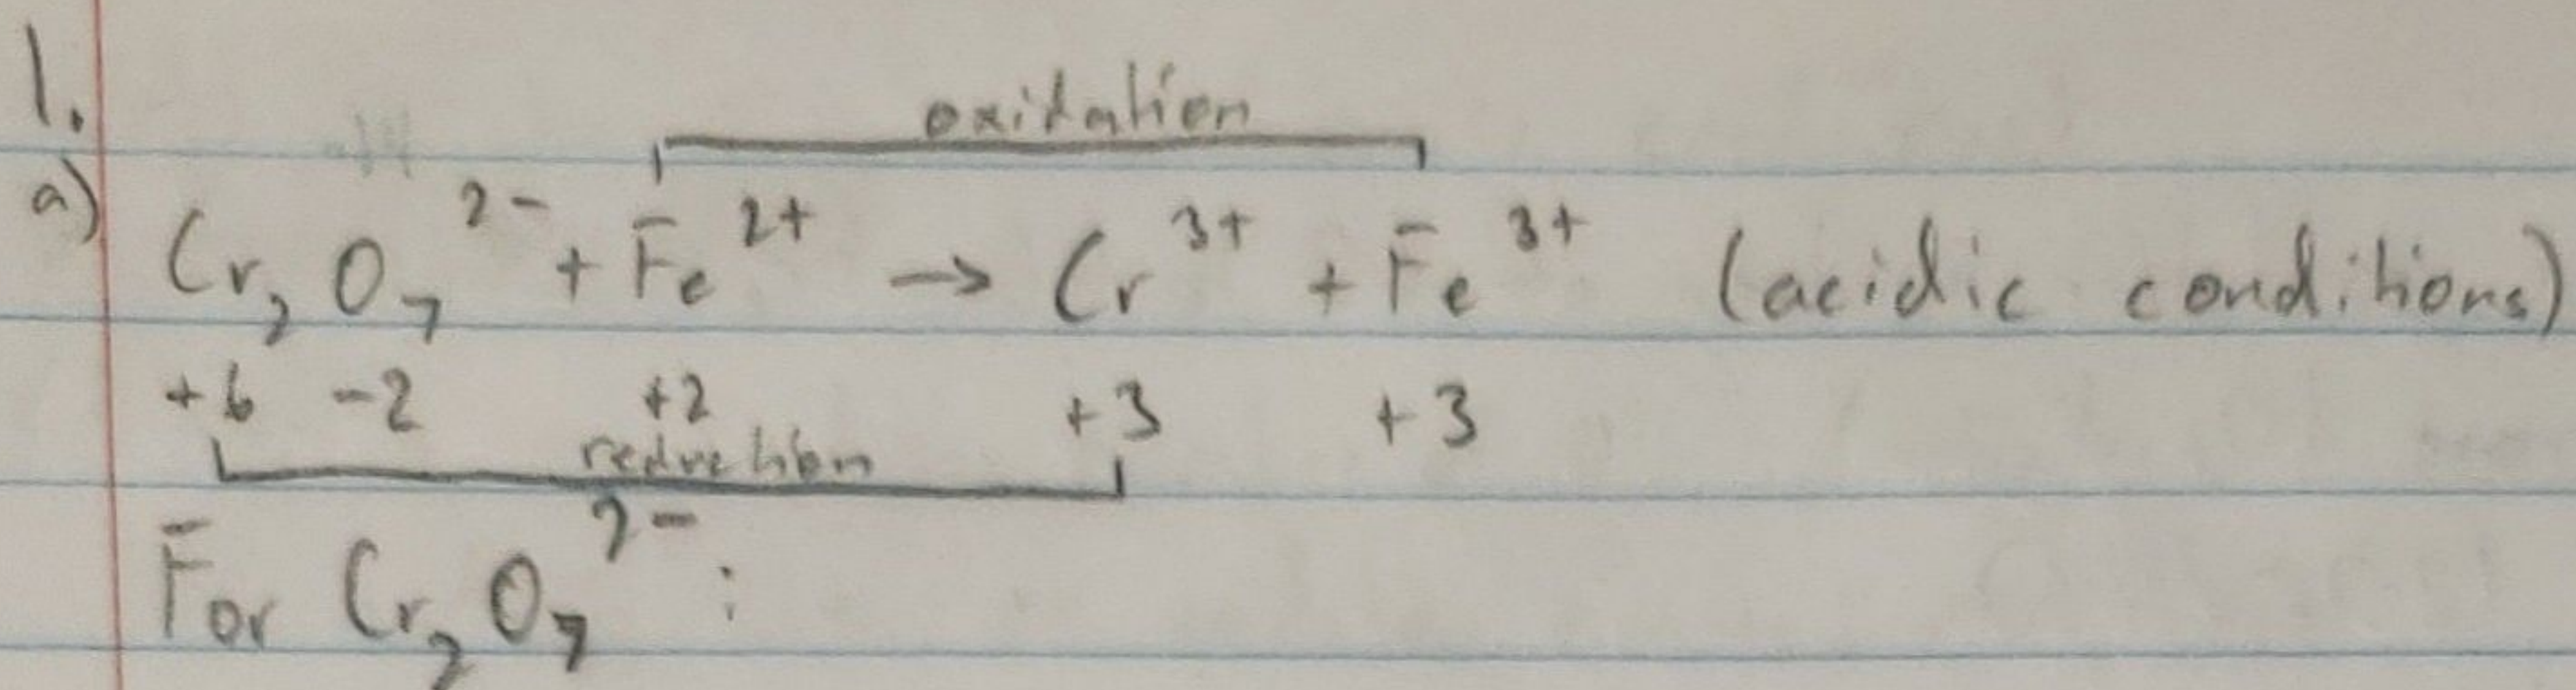 1.
oxidation
a) Cr₂O₇²⁻ + Fe²⁺ → Cr³⁺ + Fe³⁺ (acidic conditions)
+6 -2 +2 +3 +3
reduction
For Cr₂O₇²⁻ :